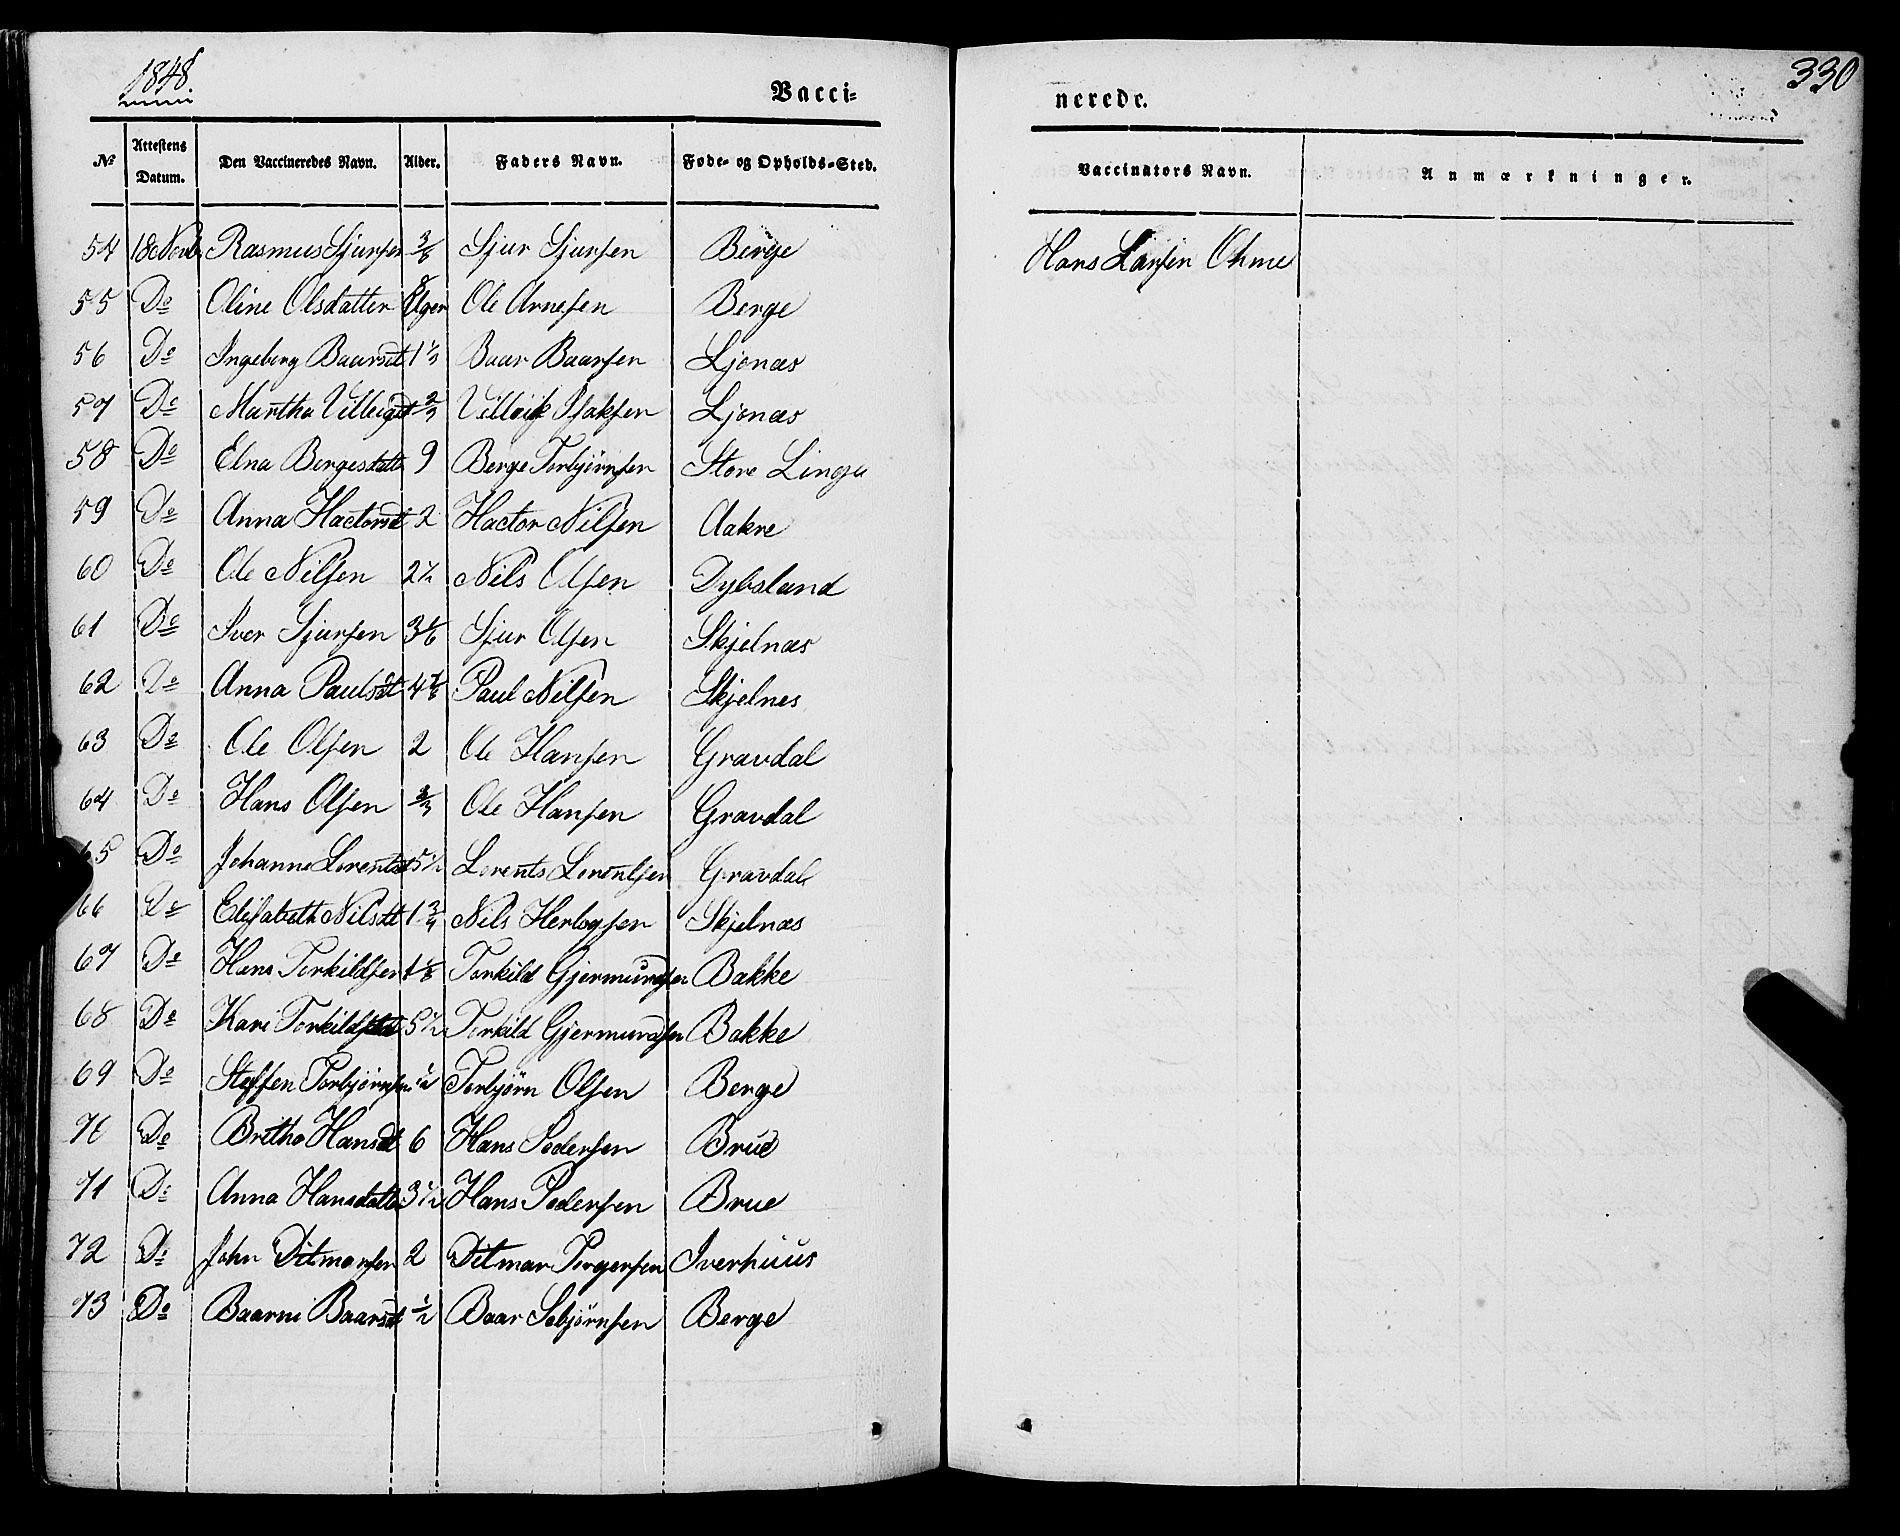 1848.
Vacci=
nerede.
330
№ Attestens Datum. Den Vaccineredes Navn. Alder. Faders Navn. Føde- og Opholds-Sted. Vaccinators Navn. Anmærkninger.
54 18 Novb Rasmus Sjursen Sjur Sjursen Berge Hans Larsen Ohme
55 Do Oline Olsdatter Ole Arnesen Berge
56 Do Ingeborg Baarsdt Baar Baarsen Ljonæs
57 Do Martha Ljonæs
58 Do Elna Bergesdatt 9 Berge Torbjörnsen Store Linga
59 Do Anna Hactorsdt 2 Hactor Nilsen Aakre
60 Do Ole Nilsen 2½ Nils Olsen Dybsland
61 Do Iver Sjursen 3⅙ Sjur Olsen Skjelnæs
62 Do Anna Paulsdt Paul Nilsen Skjelnes
63 Do Ole Olsen 2 Ole Hansen Gravdal
64 Do Hans Olsen Ole Hansen Gravdal
65 Do Johanne Lorentsdt 5½ Lorents Lorentsen Gravdal
66 Do Elisabeth Nilsdt 1¾ Nils Herlogsen Skjelnæs
67 Do Hans Torkildsen Torkild Gjermundsen Bakke
68 Do Kari 5½ Torkild Gjermundsen Bakke
69 Do Steffen Torbjørnsen ½ Torbjörn Olsen Berge
70 Do Britha Hansdt 6 Hans Pedersen Brue
71 Do Anna Hansdatter 3½ Hans Pedersen Brue
72 Do John Ditmarsen 2 Ditmar Torgersen Iverhuus
73 Do Baarni Baarsdt ½ Baar Sebjörnsen Berge